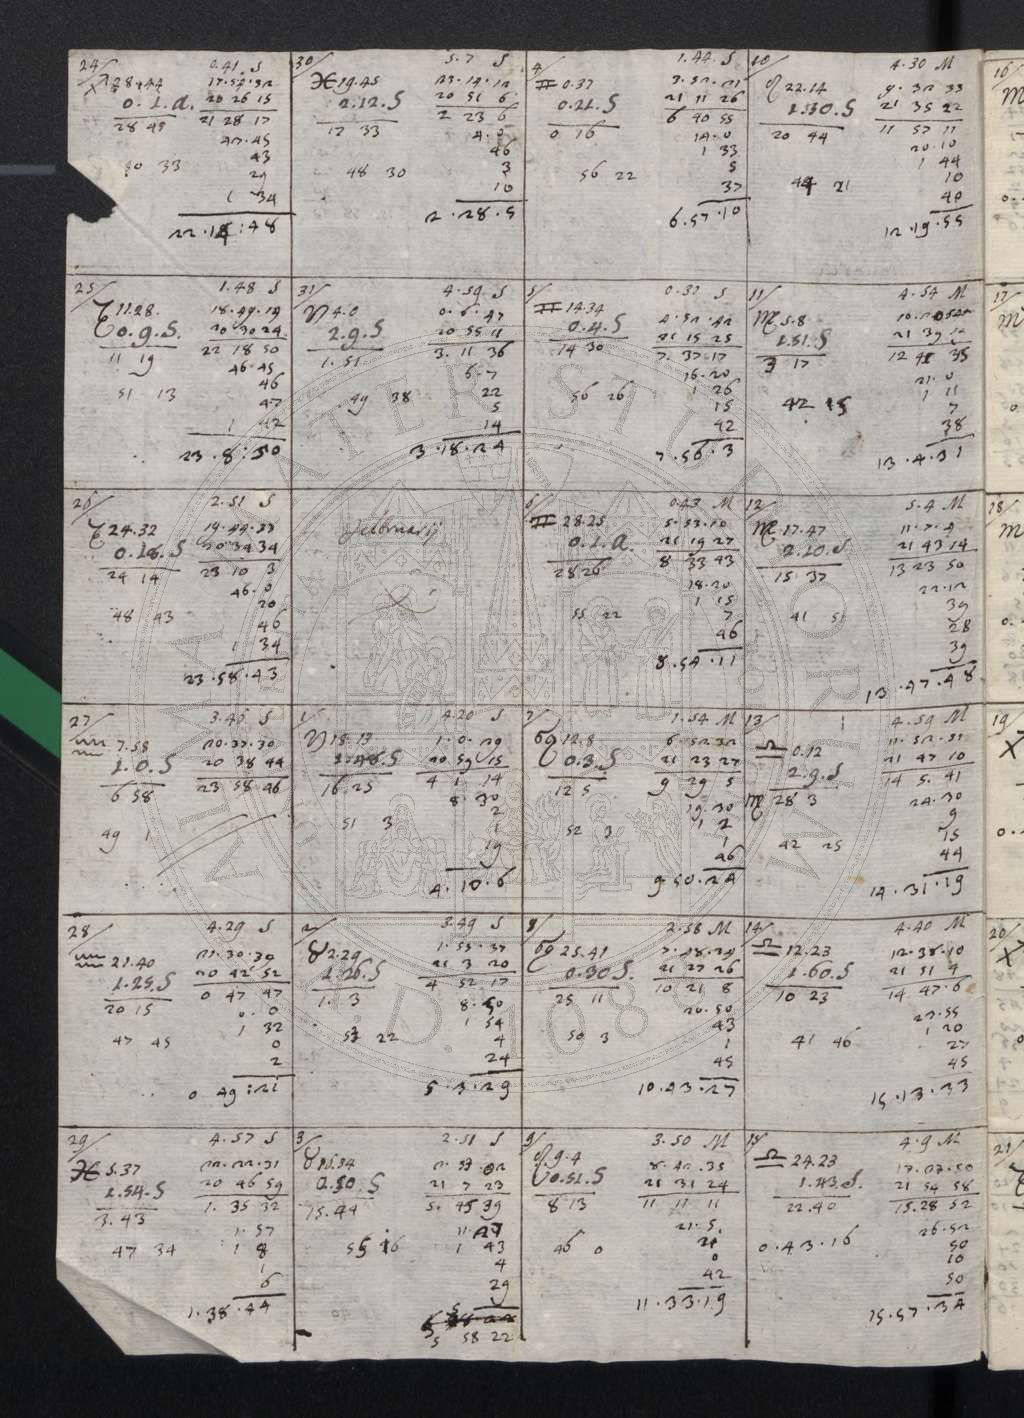 24/
0.41. S
28.44 17.52.32
0.1.a. 20 26 15
28 45 21 28 17
47.45
43
50 33 29
1 34
22.18:48
30/
5.7 S
♓ 19.45 23.19.12
2.12.S 20 51 6
17 33 2 23 6
4.0
46
48 30 3
10
2.28.5
4/
1.44. S
♊ 0.37 3.52.21
0.21.S 21 11 26
0 16 6 40 55
14.0
1 33
56 22 5
37
6.57.10
10/
4.30 M
♌ 22.14 9.32 33
1.30.S 21 35 22
20 44 11 57 11
20.10
1 44
44 21 10
40
12.19.55
25/
1.48 S
11.28. 18.49.14
0.9.S. 20 30 24
11 19 22 18 50
46.45
46
51 13 47
1 42
23.8:50
31/
4.59 S
♈ 4.0 0.6.47
2.9.S 20 55 11
1.51 3.11 36
6.7
22
49 38 5
14
3.18.24
5/
0.37 S
♊ 14.34 4.52.42
0.4.S 21 15 25
14 30 7.37.17
16.20
1 26
56 26 15
42
7.56.3
11/
4.54 M
♍ 5.8
1.51.S 21 39 12
3 17 12 41 35
21.0
1 11
42 15 7
38
13.4.31
26/
2.51 S
24.32 19.44.33
0.18.S 20 34 34
24 14 23 10 3
46.0
20
48 43 46
1 34
23.58.43
Februarij
6/
0.43 M
♊ 28.25 5.53.10
0.1.a. 21 19 27
28 26 8 33 43
18.20
1 15
55 22 7
46
8.54.11
12/
5.4 M
♍ 17.47 11.7.4
2.10.S 21 43 14
15 37 13 23 50
22.12
39
41 51 28
39
13.47.48
27/
3.46 S
♒ 7.58 20.37.30
1.0.S 20 38 44
6 58 23 58.46
49 1
1/
4.20 S
♈ 18.13 1.0.29
1.48.S 20 59 15
16.25 4 1 14
8.30
2
51 3 1
19
4.10.6
7/
1.54 M
♋ 12.8 6.52.32
0.3.S 21 23 27
12 5 9 29 5
19.30
1 2
52 3 1
46
9.50.24
13/
4.59 M
♎ 0.12 11.52.51
2.9.S 21 47 10
♍ 28 3 14 5.41
24.30
9
42 25 15
44
14.31.19
28/
4.29 S
♒ 21.40 21.30.39
1.25.S 20 42 52
20 15 0 47 47
0.0
1 32
47 45 0
2
0 49:21
2/
3.49 S
♉ 2.29 1.55.37
1.26.S 21 3 20
1.3 4 52 17
8.50
1 54
53 22 4
24
5.3.29
8/
2.58 M
♋ 25.41 7.48.24
0.30 S. 21 27 26
25 11 10 21 8
20.50
43
50 3 1
45
10.43.27
14/
4.40 M
♎ 12.23 12.38.10
1.60.S 21 51 4
10 23 14 47.6
27.55
1 20
41 46 27
45
15.13.33
29/
4.57 S
♓ 5.37 22.22.31
1.54.S 20 46 59
3.43 1.35 32
1.57
47 34 1 8
1
6
1.38.44
3/
2.51 S
♉ 16.34 2.53 52
0.50.S 21 7 23
15.44 5.45 39
11.27
55 16 1 43
4
29
5
5 58 22
9/
3.50 M
♌ 9.4 8.42.35
0.51.S 21 31 24
8 13 11 11 11
21.5.
21
46 0 0
42
11.33.19
15/
4.9 M
♎ 24.23 13.23.50
1.43.S. 21 54 58
22.40 15.28 52
26.52
50
0.43.16 10
50
15.57.34
16/
17/
18/
19/
20/
21/